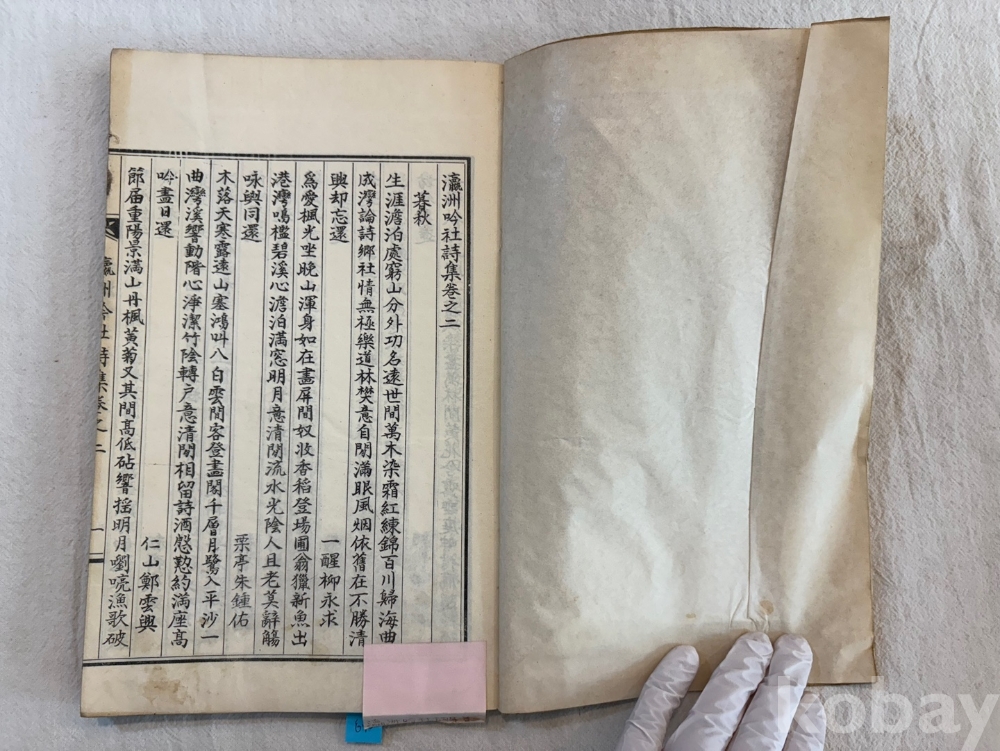 瀛洲吟社詩集卷之二
暮秋
生涯澹泊處窮山分外功名遠世間萬木染霜紅練錦百川歸海曲
成灣論詩鄉社情無極樂道林樊意自閑滿眼風烟依舊在不勝清
興却忘還
一醒柳永求
爲愛楓光坐晚山渾身如在畵屏間奴收香稻登場圃翁獵新魚出
港灣鳴檻碧溪心澹泊滿窓明月意清閑流水光陰人且老莫辭觴
咏與同還
栗亭朱鍾佑
木落天寒露遠山塞鴻叫入白雲間客登畵閣千層月鷺入平沙一
曲灣溪響動階心淨潔竹陰轉户意清閑相留詩酒慇懃約滿座高
吟盡日還
仁山鄭雲興
節届重陽景滿山丹楓黃菊又其間高低砧響搖明月嚠喨漁歌破
瀛洲吟社詩集卷之二
一
kobay